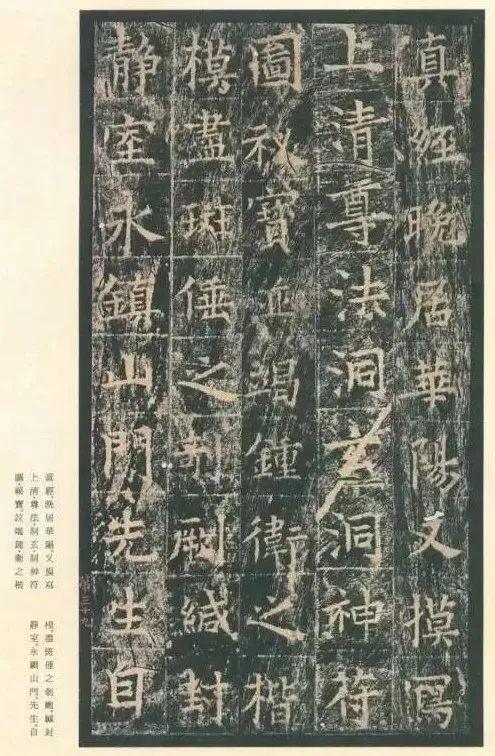 真經晚居華陽又摸寫
上清尊法洞玄洞神符
圖秘寶並竭鍾衛之楷
模盡斑倕之剞劂緘封
靜室永鎮山門先生自
真經。晚居華陽、又摸寫
上清・尊法・洞玄洞神符
圖・祕寶、竝竭鍾・衛之楷
模、盡斑倕之剞劂、緘封
靜室、永鎭山門。先生自